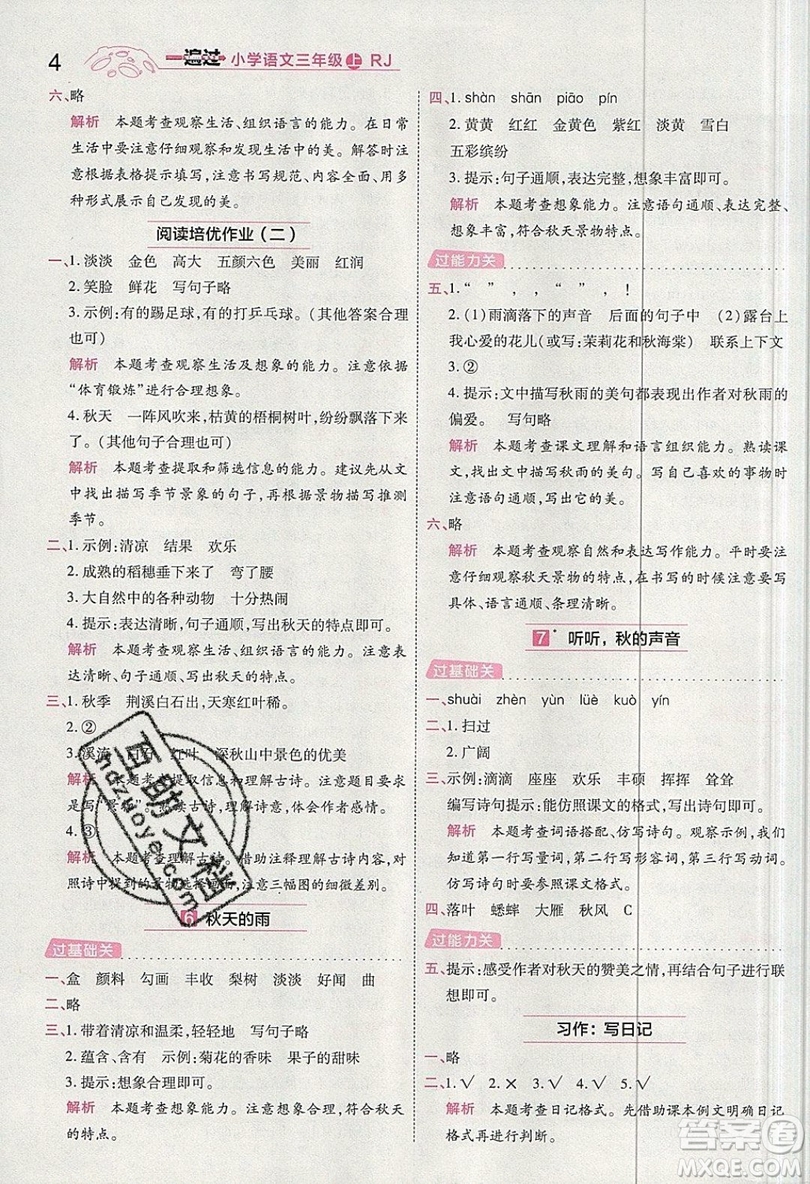 4
一遍过 小学语文三年级 上 RJ
六、略
解析 本题考查观察生活、组织语言的能力。在日常
生活中要注意仔细观察和发现美。解答时可以
根据表格提示填写，自己设计表格也可以，用多
种形式展示自己发现的美。
阅读培优作业（二）
一、1. 淡淡 金色 高大 五颜六色 美丽 红润
2. 笑脸 鲜花 写句子略
3. 示例：有的踢足球，有的打乒乓球。（其他答案合理
也可）
解析 本题考查观察生活及想象的能力。注意依据
“体育锻炼”进行合理想象。
4. 秋天 一阵风吹来，枯黄的梧桐树叶，纷纷飘落下
来。（其他句子合理也可）
解析 本题考查提取和筛选信息的能力。建议先从文
中找出描写季节景象的句子，再根据景物描写推测
季节。
二、1. 示例：清凉 结果 欢乐
2. 成熟的稻穗垂下来了 弯了腰
3. 大自然中的各种动物 十分热闹
4. 提示：表达清晰，句子通顺，写出秋天的特点即可。
解析 本题考查组织语言的能力。注意观察秋天，表
达清晰、句子通顺、写出秋天的特点即可。
三、1. 秋季 荆溪白石出，天寒红叶稀。
2. ②
3. 溪流 白石 红叶 深秋山中景色的优美
解析 本题考查提取信息和理解古诗。注意题目要求
是写“景”，不是写“情、意”，体会作者感情。
4. ③
解析 本题考查理解古诗。借助注释理解古诗内容，对
照诗中提到的景物选择图画，注意三幅图的细微差别。
6 秋天的雨
过基础关
一、盒 颜料 勾画 丰收 梨树 淡淡 好闻 曲
二、略
三、1. 带着清凉和温柔，轻轻地 写句子略
2. 蕴含、含有 示例：菊花的香味 果子的甜味
3. 提示：想象合理即可。
解析 本题考查想象能力。注意想象合理，符合秋天
的特点。
四、1. shàn shān piāo pín
2. 黄黄 红红 金黄色 紫红 淡黄 雪白
五彩缤纷
3. 提示：句子通顺，表达完整，想象丰富即可。
解析 本题考查想象能力。注意语句通顺、表达完整、
想象丰富，符合秋天景物特点。
过能力关
五、1. “ ” ， ，“ ， ！
2. （1）雨滴落下的声音 后面的句子中 （2）露台上
我心爱的花儿（或写：茉莉花和秋海棠） 联系上下文
3. ②
4. 提示：文中描写秋雨的美句都表现出作者对秋雨的
偏爱。 写句略
解析 本题考查课文理解和语言组织能力。熟读课
文，注意描写秋雨的美句。写自己喜欢的事物时
注意语句通顺，写出事物的美。
六、略
解析 本题考查观察自然和表达写作能力。平时要注
意仔细观察秋天景物的特点。在书写时注意书写
具体、语句通顺、条理清晰。
7* 听听，秋的声音
过基础关
一、shuài zhèn yùn lüè kuò yín
二、1. 扫过
2. 广阔
三、示例：滴滴 座座 欢乐 丰硕 挥挥 耸耸
编写诗句提示：能仿照课文的格式，书写生动即可。
解析 本题考查词语搭配、仿写诗句。观察示例，我们
知道第一行写量词，第二行写形容词，第三行写动词。
仿写诗句时要注意参照课文格式。
四、落叶 蟋蟀 大雁 秋风 C
过能力关
五、提示：感受作者对秋天的赞美之情，再结合句子进行联
想即可。
习作：写日记
一、略
二、1. √ 2. × 3. √ 4. √ 5. √
解析 本题考查日记格式。先借助课本例文明确日记
格式要求，再进行判断。
互助文档
hdzuoye.com
答案圈
MXQE.COM